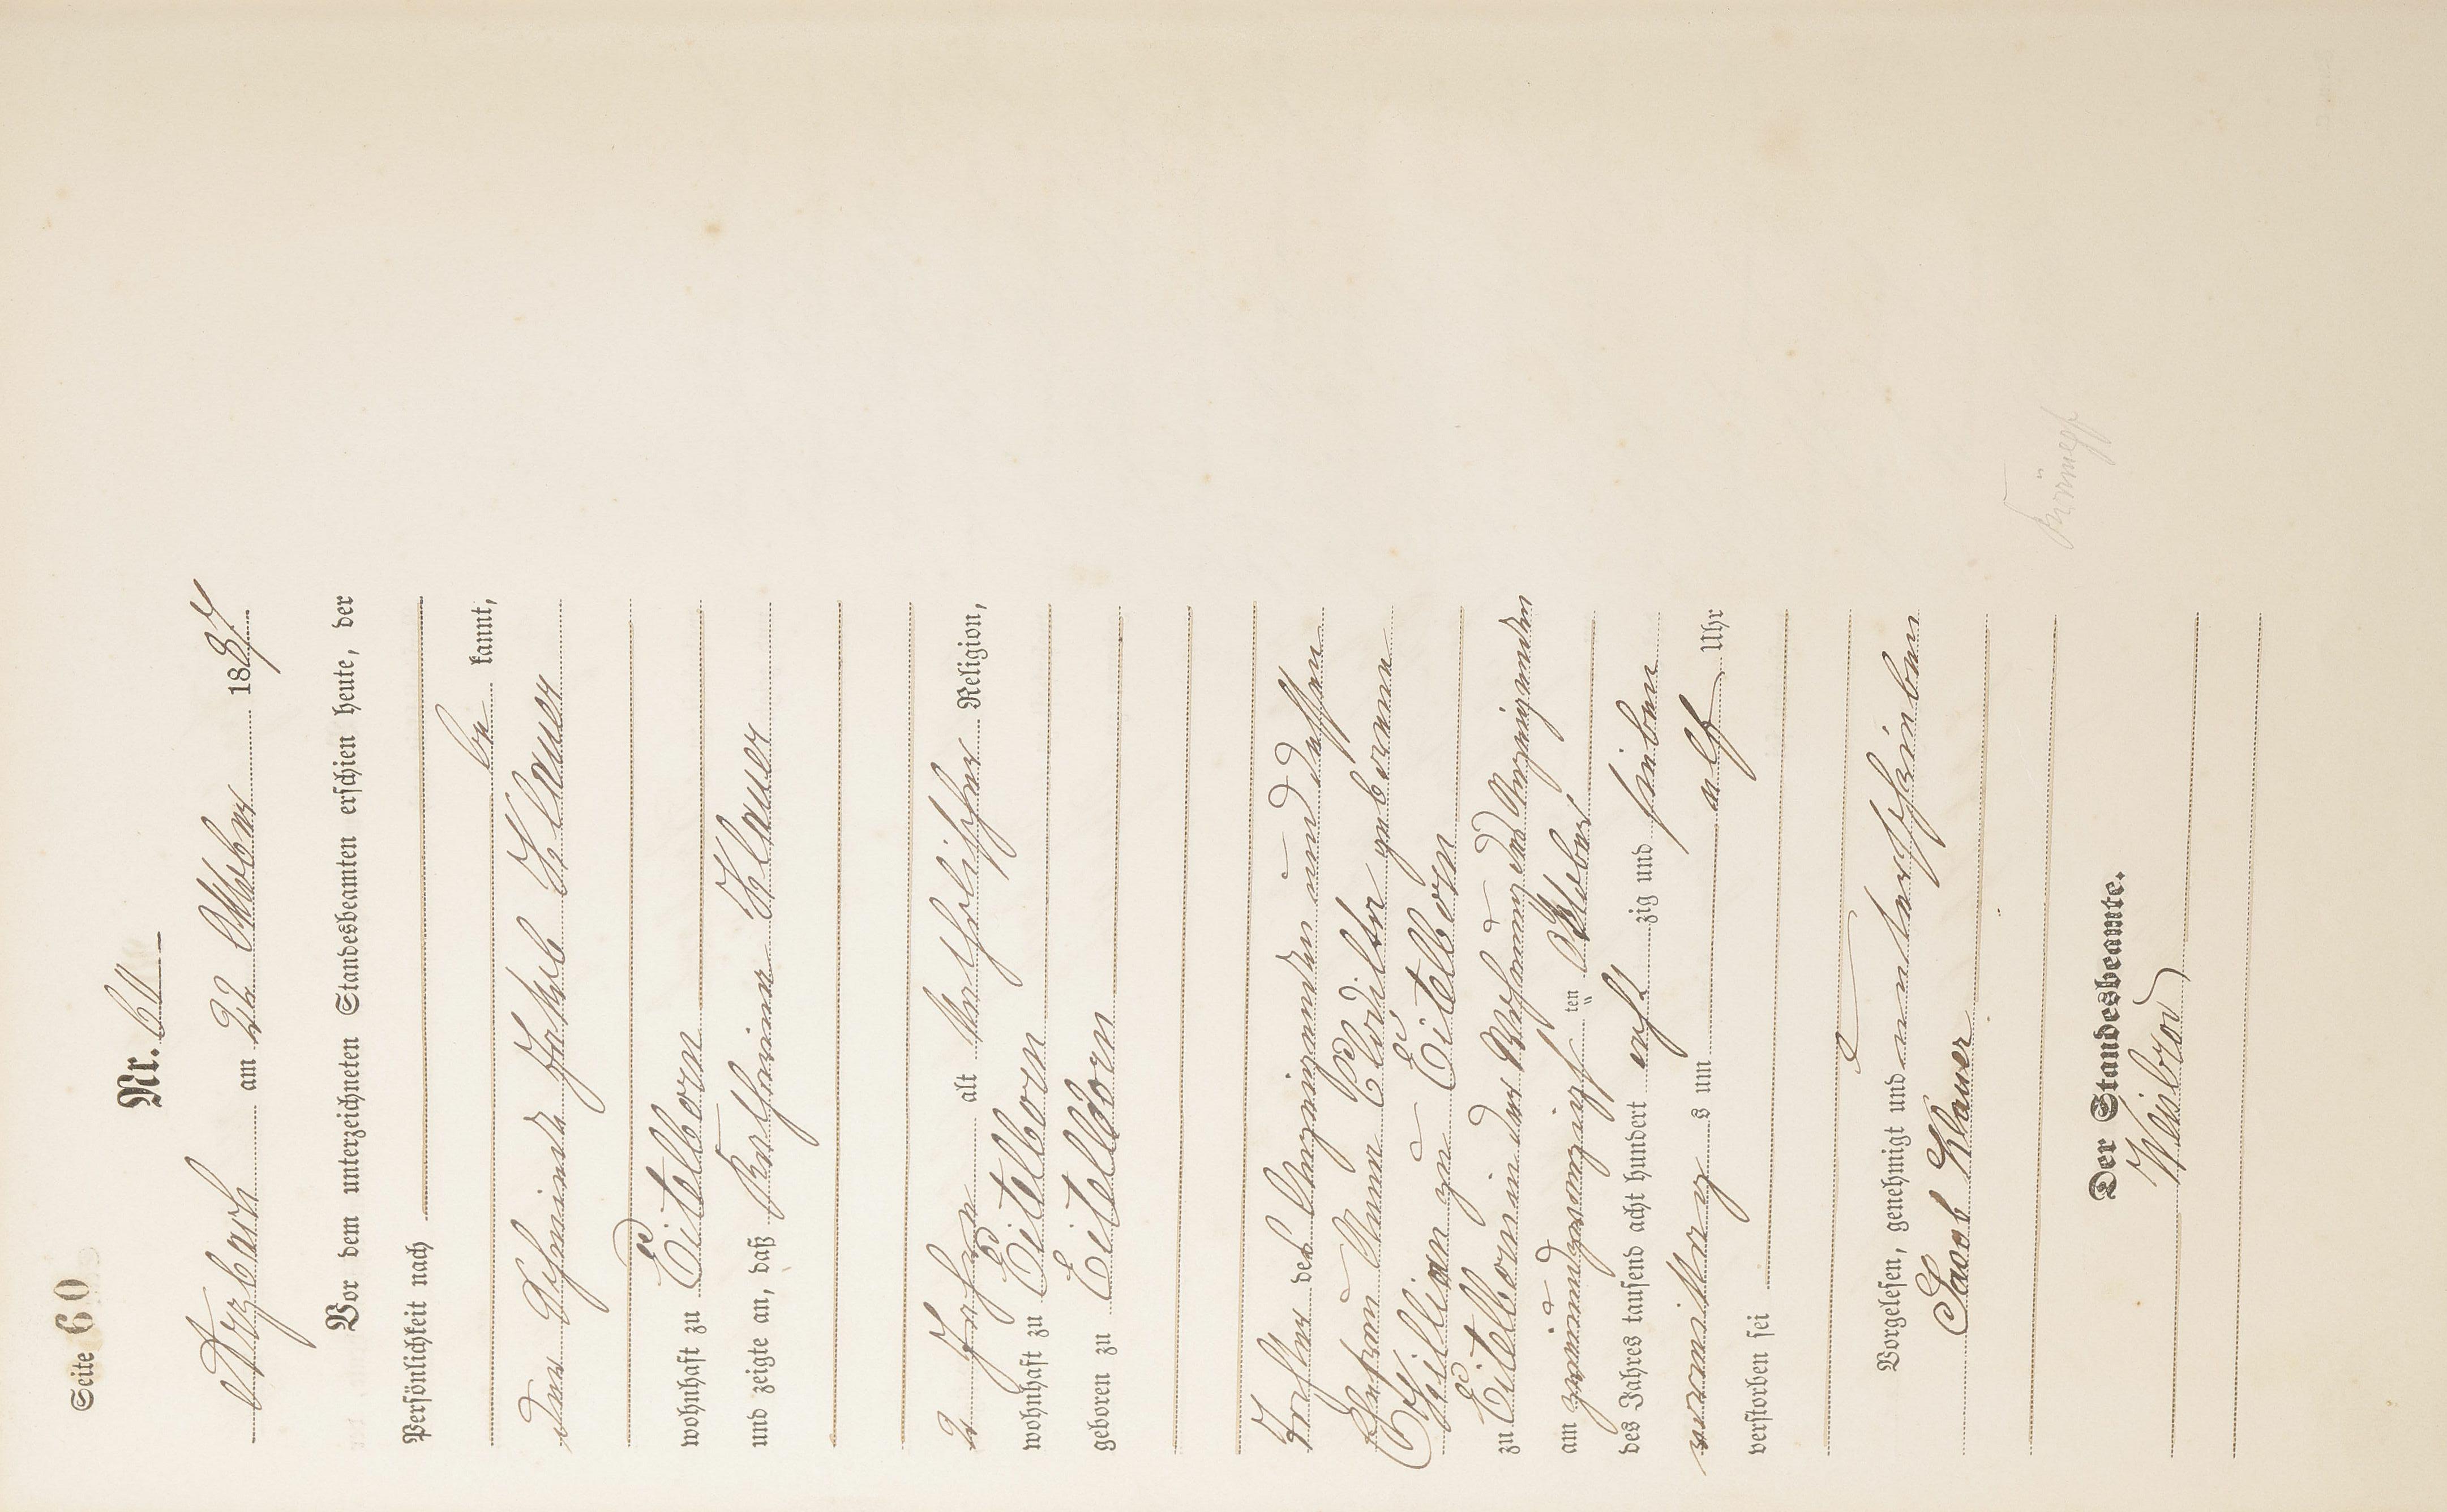 Seite 60
Nr. 60
Arzbach am 22 Oktober 1887
Vor dem unterzeichneten Standesbeamten erschien heute, der
Persönlichkeit nach
be kannt,
der Schmied Jakob Klauer
wohnhaft zu Eitelborn
und zeigte an, daß Katharina Klauer
2 Jahre alt katholischer Religion,
wohnhaft zu Eitelborn
geboren zu Eitelborn
Tochter des Anzeigenden und dessen
Ehefrau Anna Clodilte geborene
Killian zu Eitelborn
zu Eitelborn in der Wohnung des Anzeigenden
am zweiundzwanzigsten Oktober
des Jahres tausend acht hundert acht zig und sieben
vormittags um elf Uhr
verstorben sei
Vorgelesen, genehmigt und unterschrieben
Jacob Klauer
Der Standesbeamte.
Weisbrod